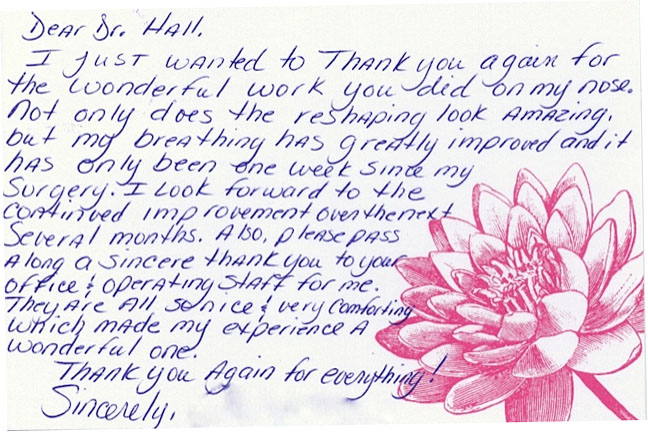 Dear Dr. Hall.
I just wanted to Thank you again for
the wonderful work you did on my nose.
Not only does the reshaping look amazing,
but my breathing has greatly improved and it
has only been one week since my
surgery. I look forward to the
continued improvement over the next
several months. Also, please pass
along a sincere thank you to your
office & operating staff for me.
They are all so nice & very comforting
which made my experience a
wonderful one.
Thank you Again for everything!
Sincerely,